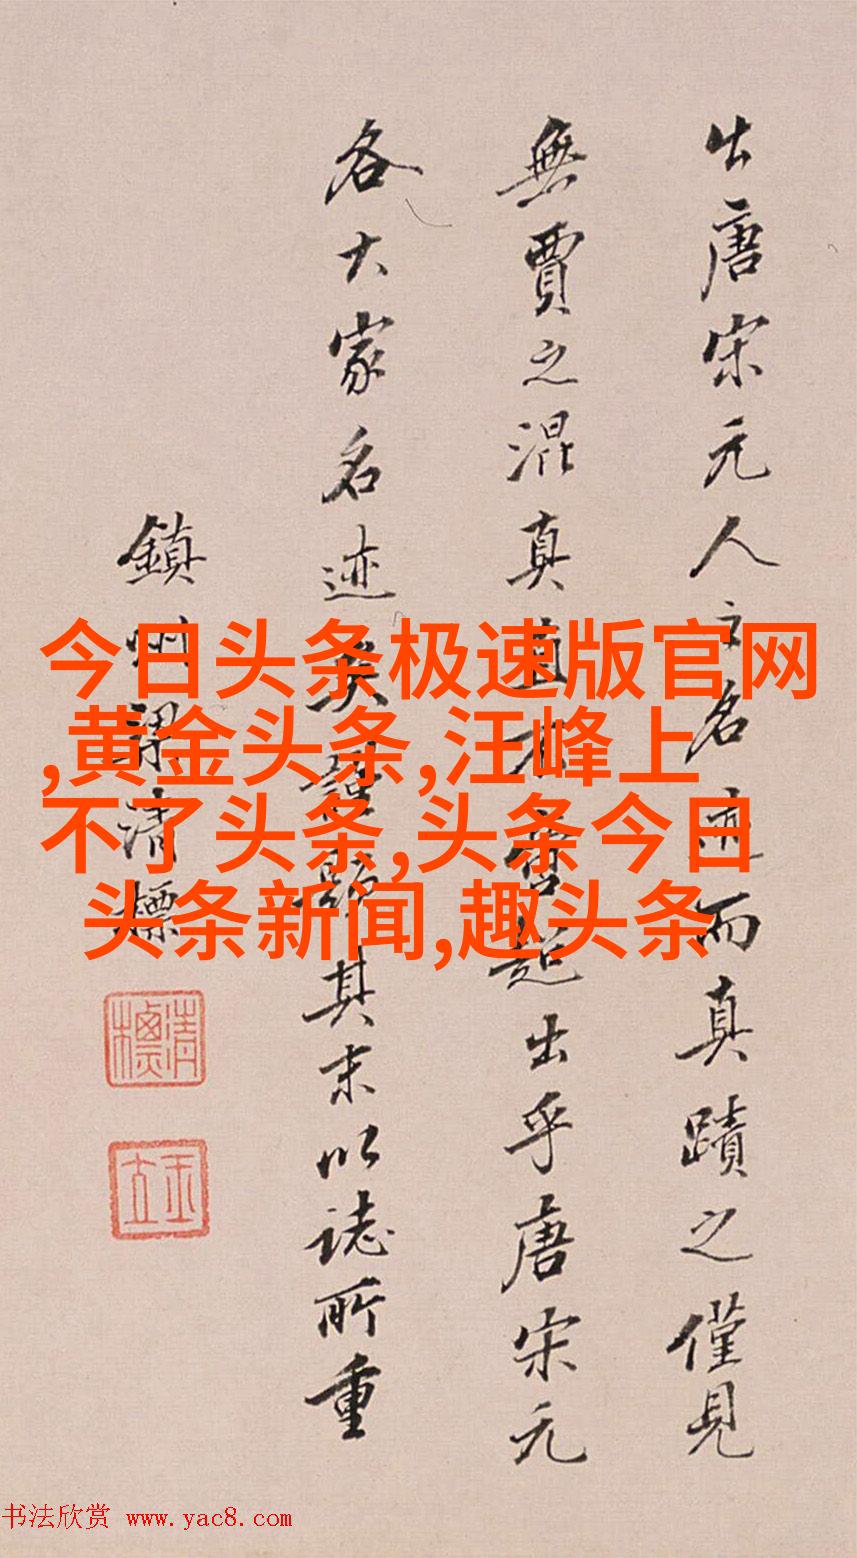 出唐宋元人之名迹而真蹟之僅見
無賈之混真直有超出乎唐宋元
各大家名迹矣謹題其末以誌所重
鎮州梁清標
清標
玉立
今日头条极速版官网
,黄金头条,汪峰上
不了头条,头条今日
头条新闻,趣头条
书法欣赏 www.yac8.com